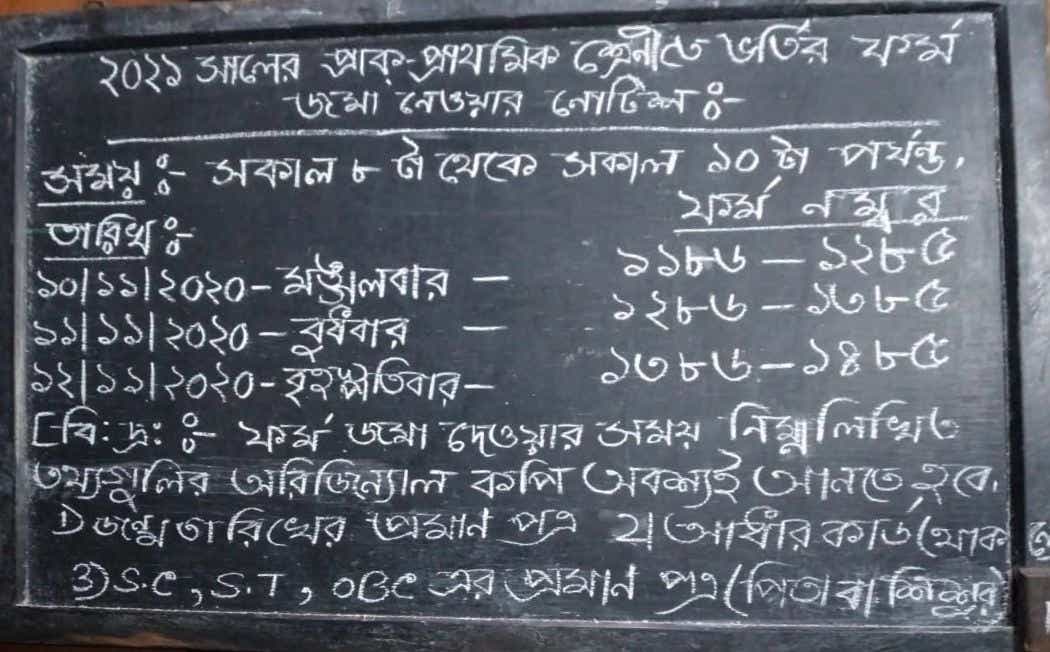 ২০২১ সালের প্রাক-প্রাথমিক শ্রেনীতে ভর্তির ফর্ম
জমা নেওয়ার নোটিশ ঃ-
সময় ঃ- সকাল ৮ টা থেকে সকাল ১০ টা পর্যন্ত,
ফর্ম নম্বর
তারিখ ঃ-
১০|১১|২০২০ - মঙ্গলবার — ১১৮৬ — ১২৮৫
১১|১১|২০২০ - বুধবার — ১২৮৬ — ১৩৮৫
১২|১১|২০২০ - বৃহস্পতিবার — ১৩৮৬ — ১৪৮৫
[বি: দ্র: ঃ- ফর্ম জমা দেওয়ার সময় নিম্নলিখিত
তথ্যগুলির অরিজিন্যাল কপি অবশ্যই আনতে হবে,
১) জন্ম তারিখের প্রমান পত্র ২| আধার কার্ড (থাক
3) S.C, S.T, OBC এর প্রমান পত্র (পিতা বা শিশুর)